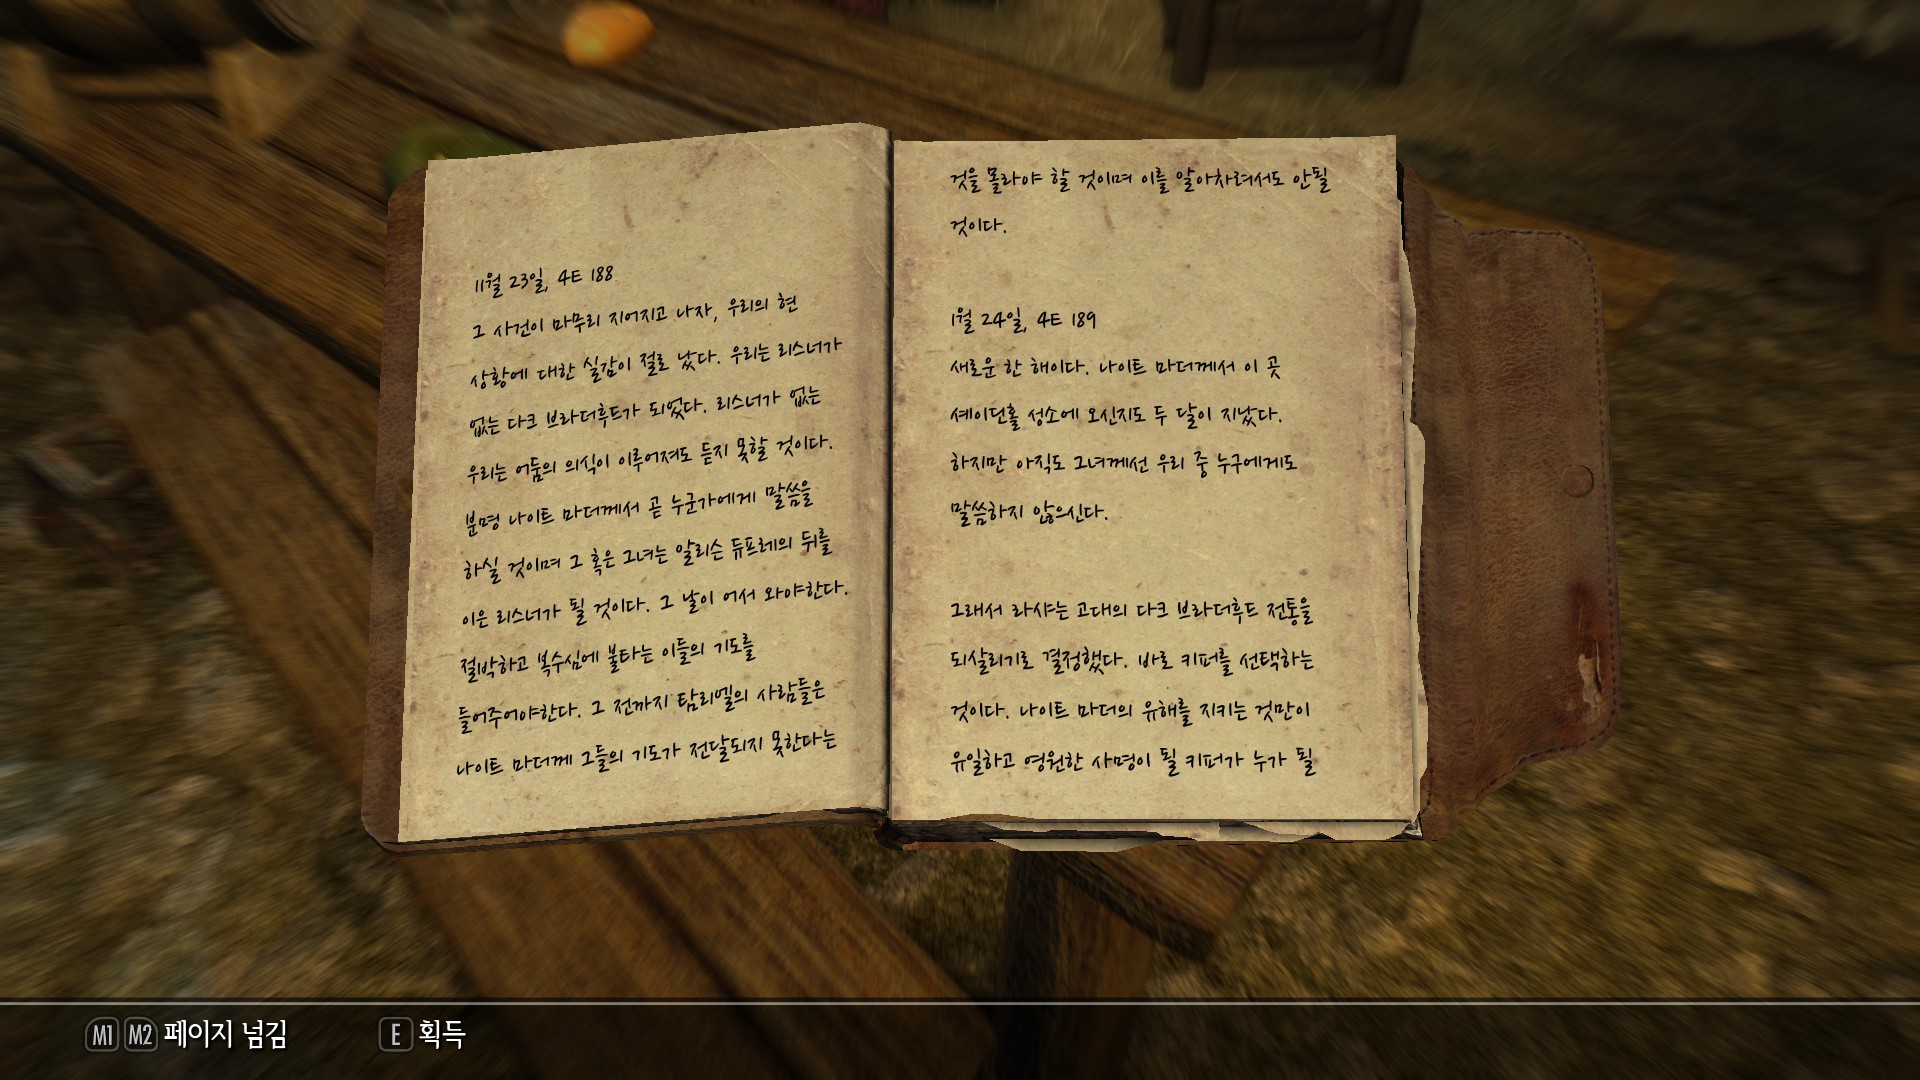 11월 23일, 4E 188
그 사건이 마무리 지어지고 나자, 우리의 현
상황에 대한 실감이 절로 났다. 우리는 리스너가
없는 다크 브라더후드가 되었다. 리스너가 없는
우리는 어둠의 의식이 이루어져도 듣지 못할 것이다.
분명 나이트 마더께서 곧 누군가에게 말씀을
하실 것이며 그 혹은 그녀는 알리슨 듀프레의 뒤를
이은 리스너가 될 것이다. 그 날이 어서 와야한다.
절박하고 복수심에 불타는 이들의 기도를
들어주어야한다. 그 전까지 탐리엘의 사람들은
나이트 마더께 그들의 기도가 전달되지 못한다는
것을 몰라야 할 것이며 이를 알아차려서도 안될
것이다.
1월 24일, 4E 189
새로운 한 해이다. 나이트 마더께서 이 곳
셰이딘홀 성소에 오신지도 두 달이 지났다.
하지만 아직도 그녀께선 우리 중 누구에게도
말씀하지 않으신다.
그래서 라샤는 고대의 다크 브라더후드 전통을
되살리기로 결정했다. 바로 키퍼를 선택하는
것이다. 나이트 마더의 유해를 지키는 것만이
유일하고 영원한 사명이 될 키퍼가 누가 될
M1 M2 페이지 넘김 E 획득